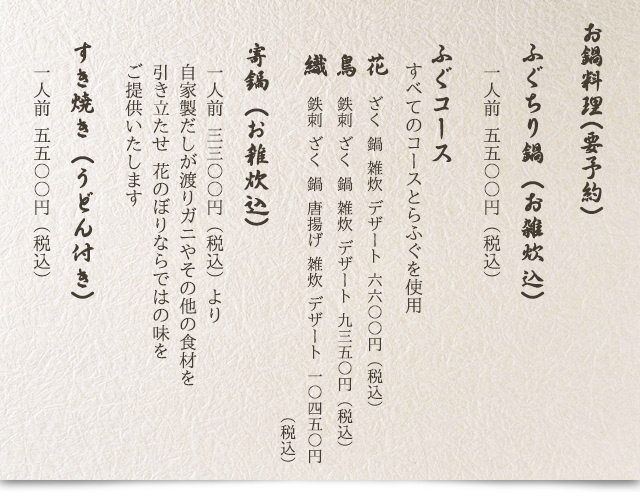 お鍋料理（要予約）
ふぐちり鍋（お雑炊込）
一人前 五五〇〇円（税込）
ふぐコース
すべてのコースとらふぐを使用
花 ざく 鍋 雑炊 デザート 六六〇〇円（税込）
鳥 鉄刺 ざく 鍋 雑炊 デザート 九三五〇円（税込）
織 鉄刺 ざく 鍋 唐揚げ 雑炊 デザート 一〇四五〇円
（税込）
寄鍋（お雑炊込）
一人前 三三〇〇円（税込）より
自家製だしが渡りガニやその他の食材を
引き立たせ 花のぼりならではの味を
ご提供いたします
すき焼き（うどん付き）
一人前 五五〇〇円（税込）